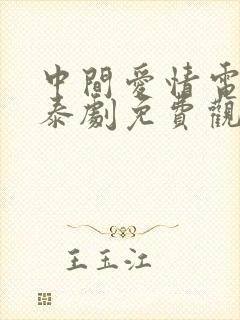 中間愛情電
泰劇免費觀
王玉江